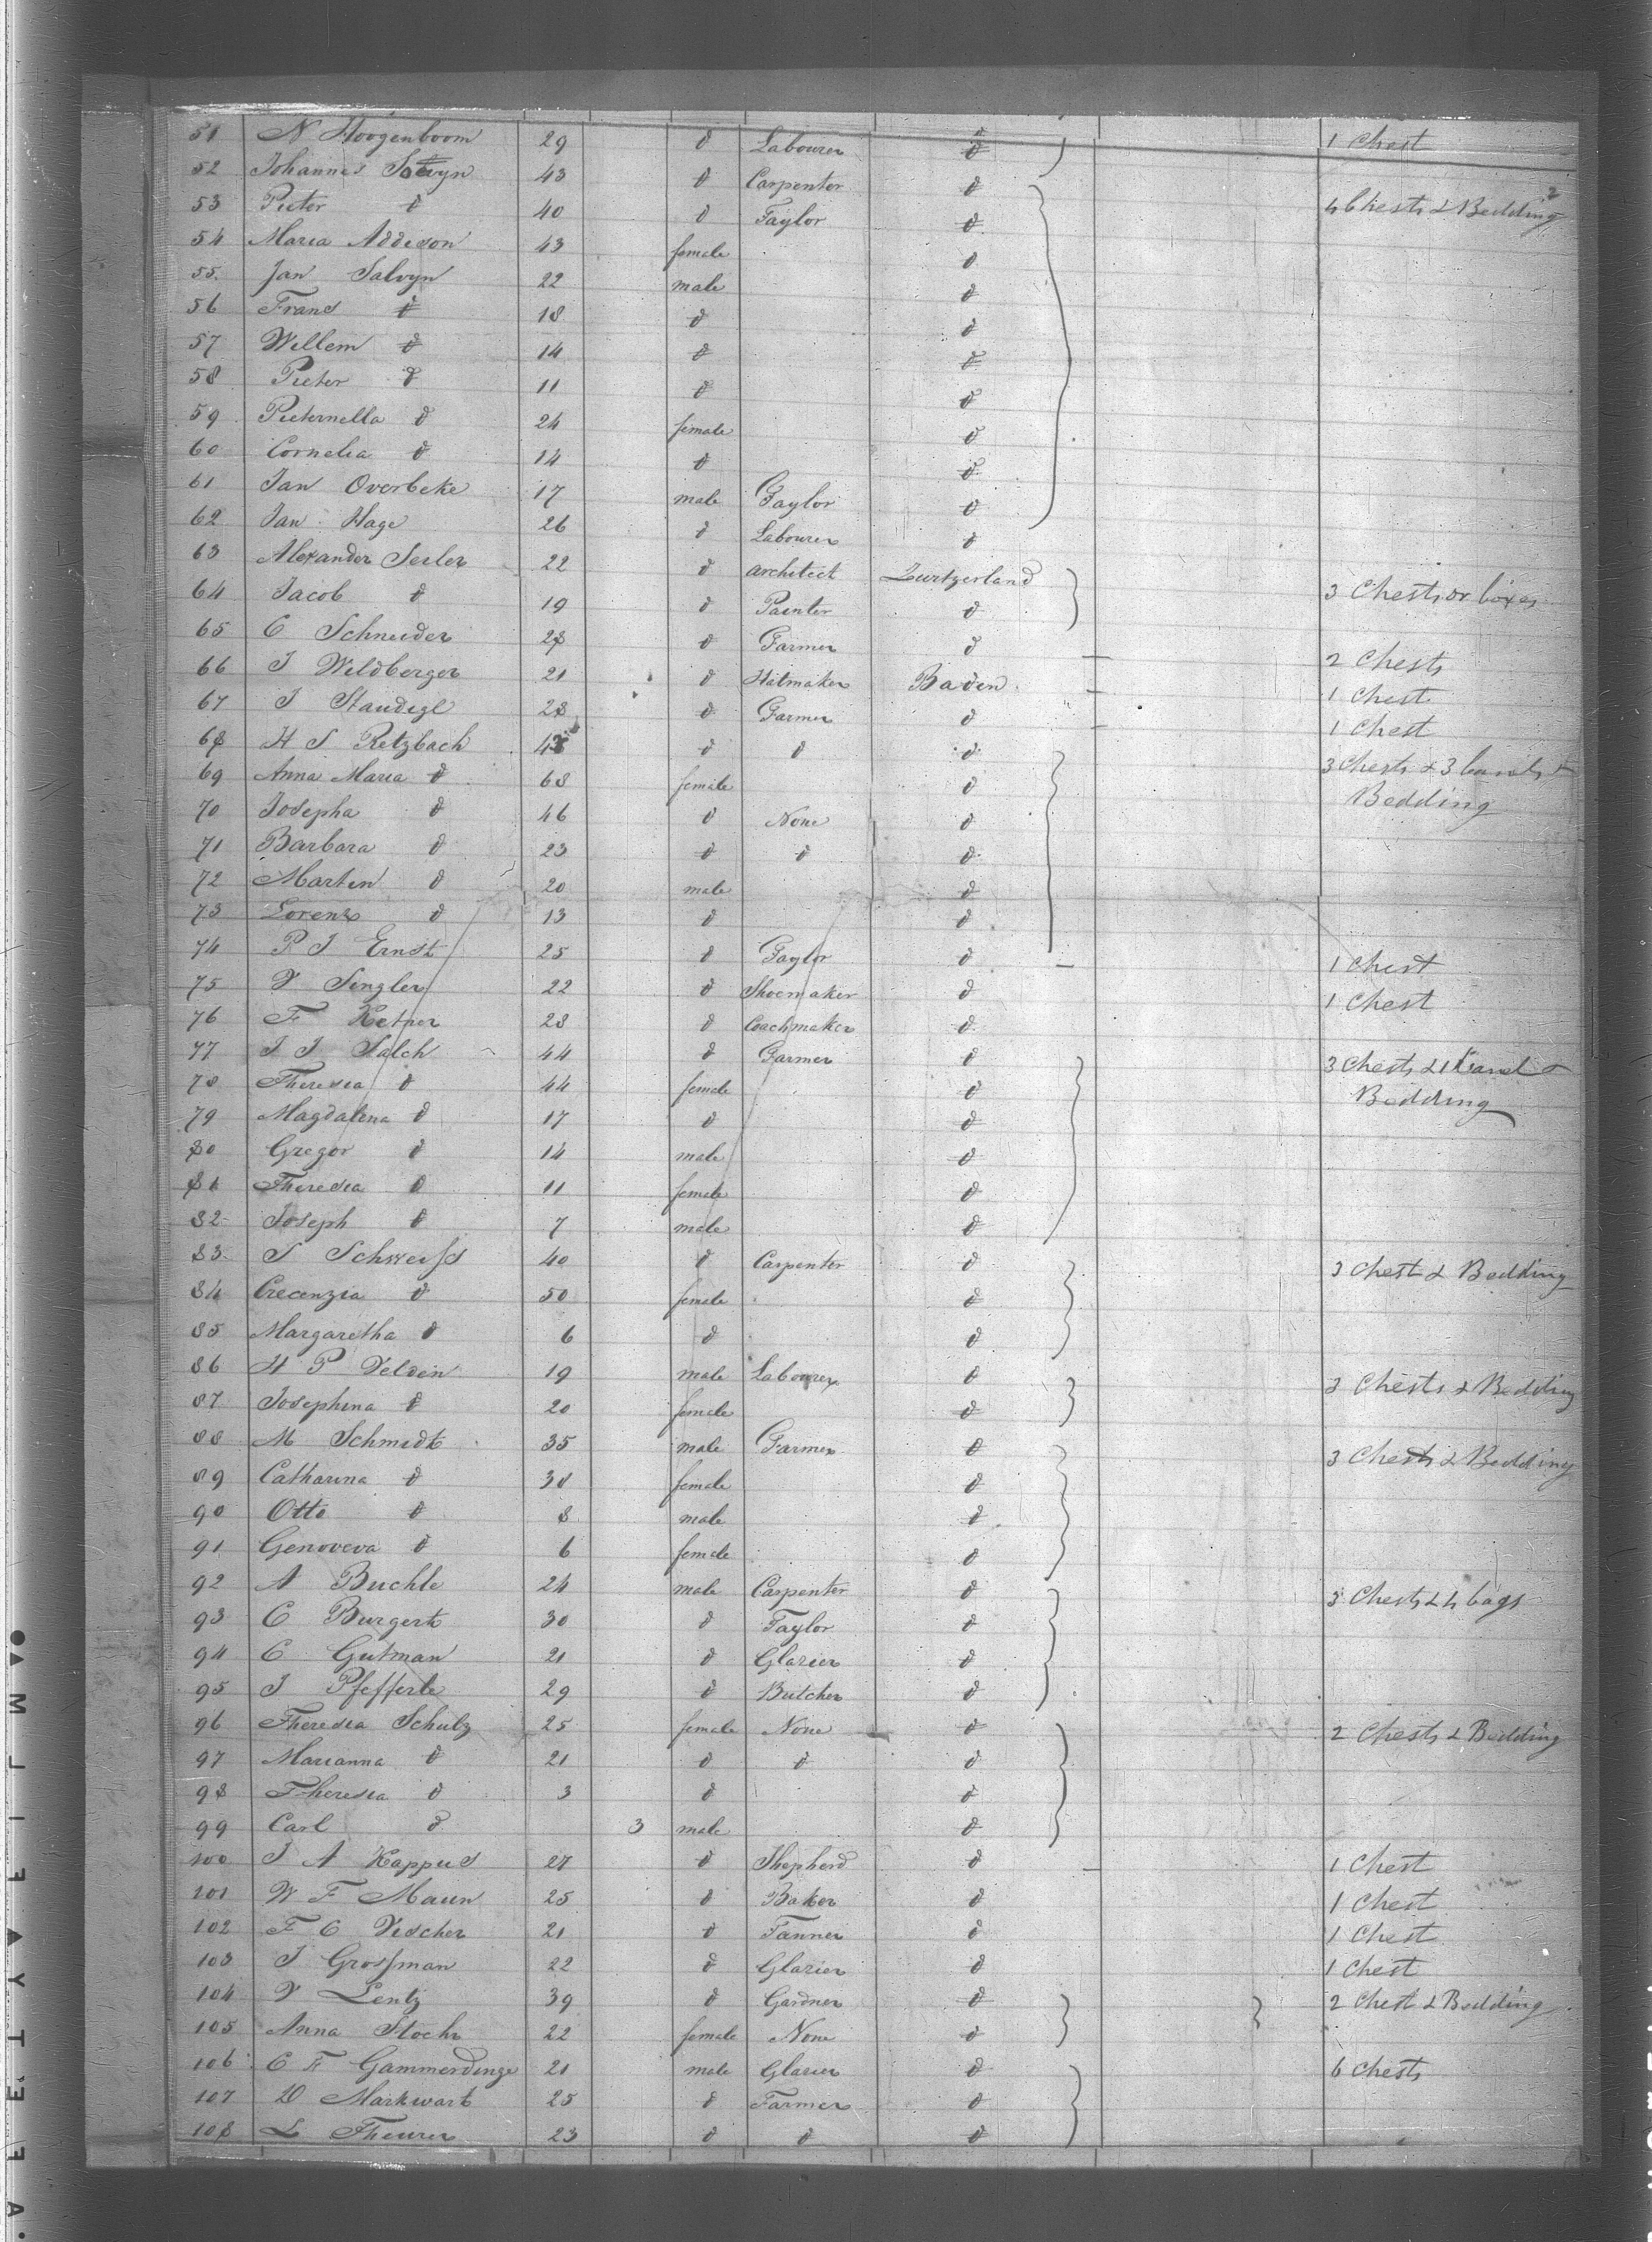 51 N Hoogenboom 29 d Labourer d 1 Chest
52 Johannes Salvyn 43 d Carpenter d
53 Pieter d 40 d Taylor d 4 Chests & Bedding
54 Maria Addison 43 female d
55 Jan Salvyn 22 male d
56 Frans d 18 d d
57 Willem d 14 d d
58 Pieter d 11 d d
59 Pieternella d 24 female d
60 Cornelia d 14 d d
61 Jan Overbeke 17 male Taylor d
62 Jan Hage 26 d Labourer d
63 Alexander Seiler 22 d architect Zwitzerland 3 Chests or boxes
64 Jacob d 19 d Painter d
65 C Schneider 28 d Farmer d 2 Chests
66 J Wildberger 21 d Hatmaker Baden 1 Chest
67 J Staudigl 28 d Farmer d 1 Chest
68 H S Retzbach 48 d d d 3 Chests & 3 barrels &
69 Anna Maria d 68 female d Bedding
70 Josepha d 46 d None d
71 Barbara d 23 d d d
72 Martin d 20 male d
73 Lorenz d 13 d d
74 P J Ernst 25 d Taylor d 1 Chest
75 V Singler 22 d Shoemaker d 1 Chest
76 F Ketner 28 d Coachmaker d
77 J J Salch 44 d Farmer d 3 Chests & 1 Barrel &
78 Theresia d 44 female d Bedding
79 Magdalena d 17 d d
80 Gregor d 14 male d
81 Theresia d 11 female d
82 Joseph d 7 male d
83 S Schweiss 40 d Carpenter d 3 Chest & Bedding
84 Crecenzia d 50 female d
85 Margaretha d 6 d d
86 H P Velden 19 male Labourer d 3 Chests & Bedding
87 Josephina d 20 female d
88 M Schmidt 35 male Farmer d 3 Chests & Bedding
89 Catharina d 38 female d
90 Otto d 8 male d
91 Genoveva d 6 female d
92 A Buchle 24 male Carpenter d 3 Chests & 4 bags
93 C Burgert 30 d Taylor d
94 C Gutman 21 d Glazier d
95 J Pfefferle 29 d Butcher d
96 Theresia Schulz 25 female None d 2 Chests & Bedding
97 Marianna d 21 d d d
98 Theresia d 3 d d
99 Carl d 3 male d
100 J A Kappus 27 d Shepherd d 1 Chest
101 W F Maun 25 d Baker d 1 Chest
102 F C Vischer 21 d Tanner d 1 Chest
103 J Grossman 22 d Glazier d 1 Chest
104 V Lentz 39 d Gardner d 2 Chest & Bedding
105 Anna Stoch 22 female None d
106 C F Gammerdinge 21 male Glazier d 6 Chests
107 D Markwart 25 d Farmer d
108 L Theurer 23 d d d